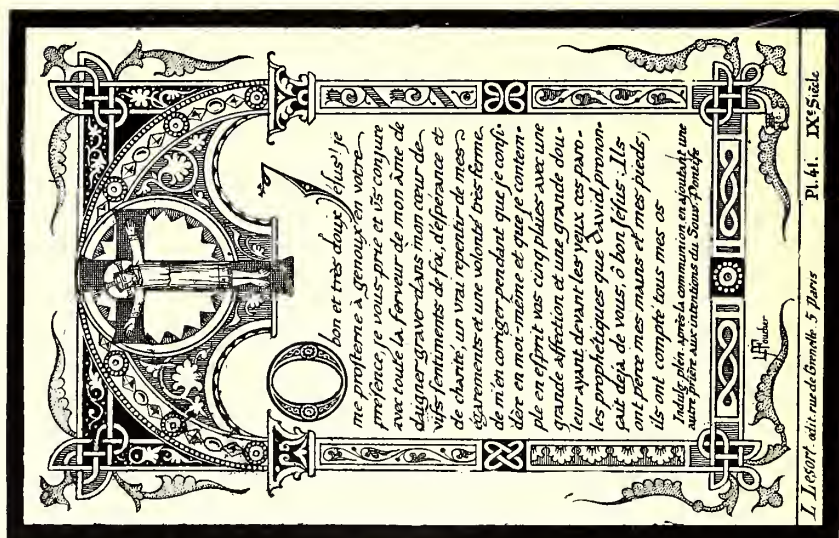 O bon et très doux Jéſus! je
me proſterne à genoux en votre
préſence, je vous prie et vs conjure
avec toute la ferveur de mon âme de
daigner graver dans mon cœur de
vifs ſentiments de foi, d'eſpérance et
de charité, un vrai repentir de mes
égarements et une volonté très ferme
de m'en corriger pendant que je conſi-
dère en moi-même et que je contem-
ple en eſprit vos cinq plaies avec une
grande affection et une grande dou-
leur ayant devant les yeux ces paro-
les prophétiques que David pronon-
çait déjà de vous, ô bon Jéſus: Ils
ont percé mes mains et mes pieds,
ils ont compté tous mes os
Indulg. plén. après la communion en ajoutant une
autre prière aux intentions du Souv. Pontife
Foucher
L. Lesort. édit. rue de Grenelle. 5 Paris
Pl. 41. IXe Siècle